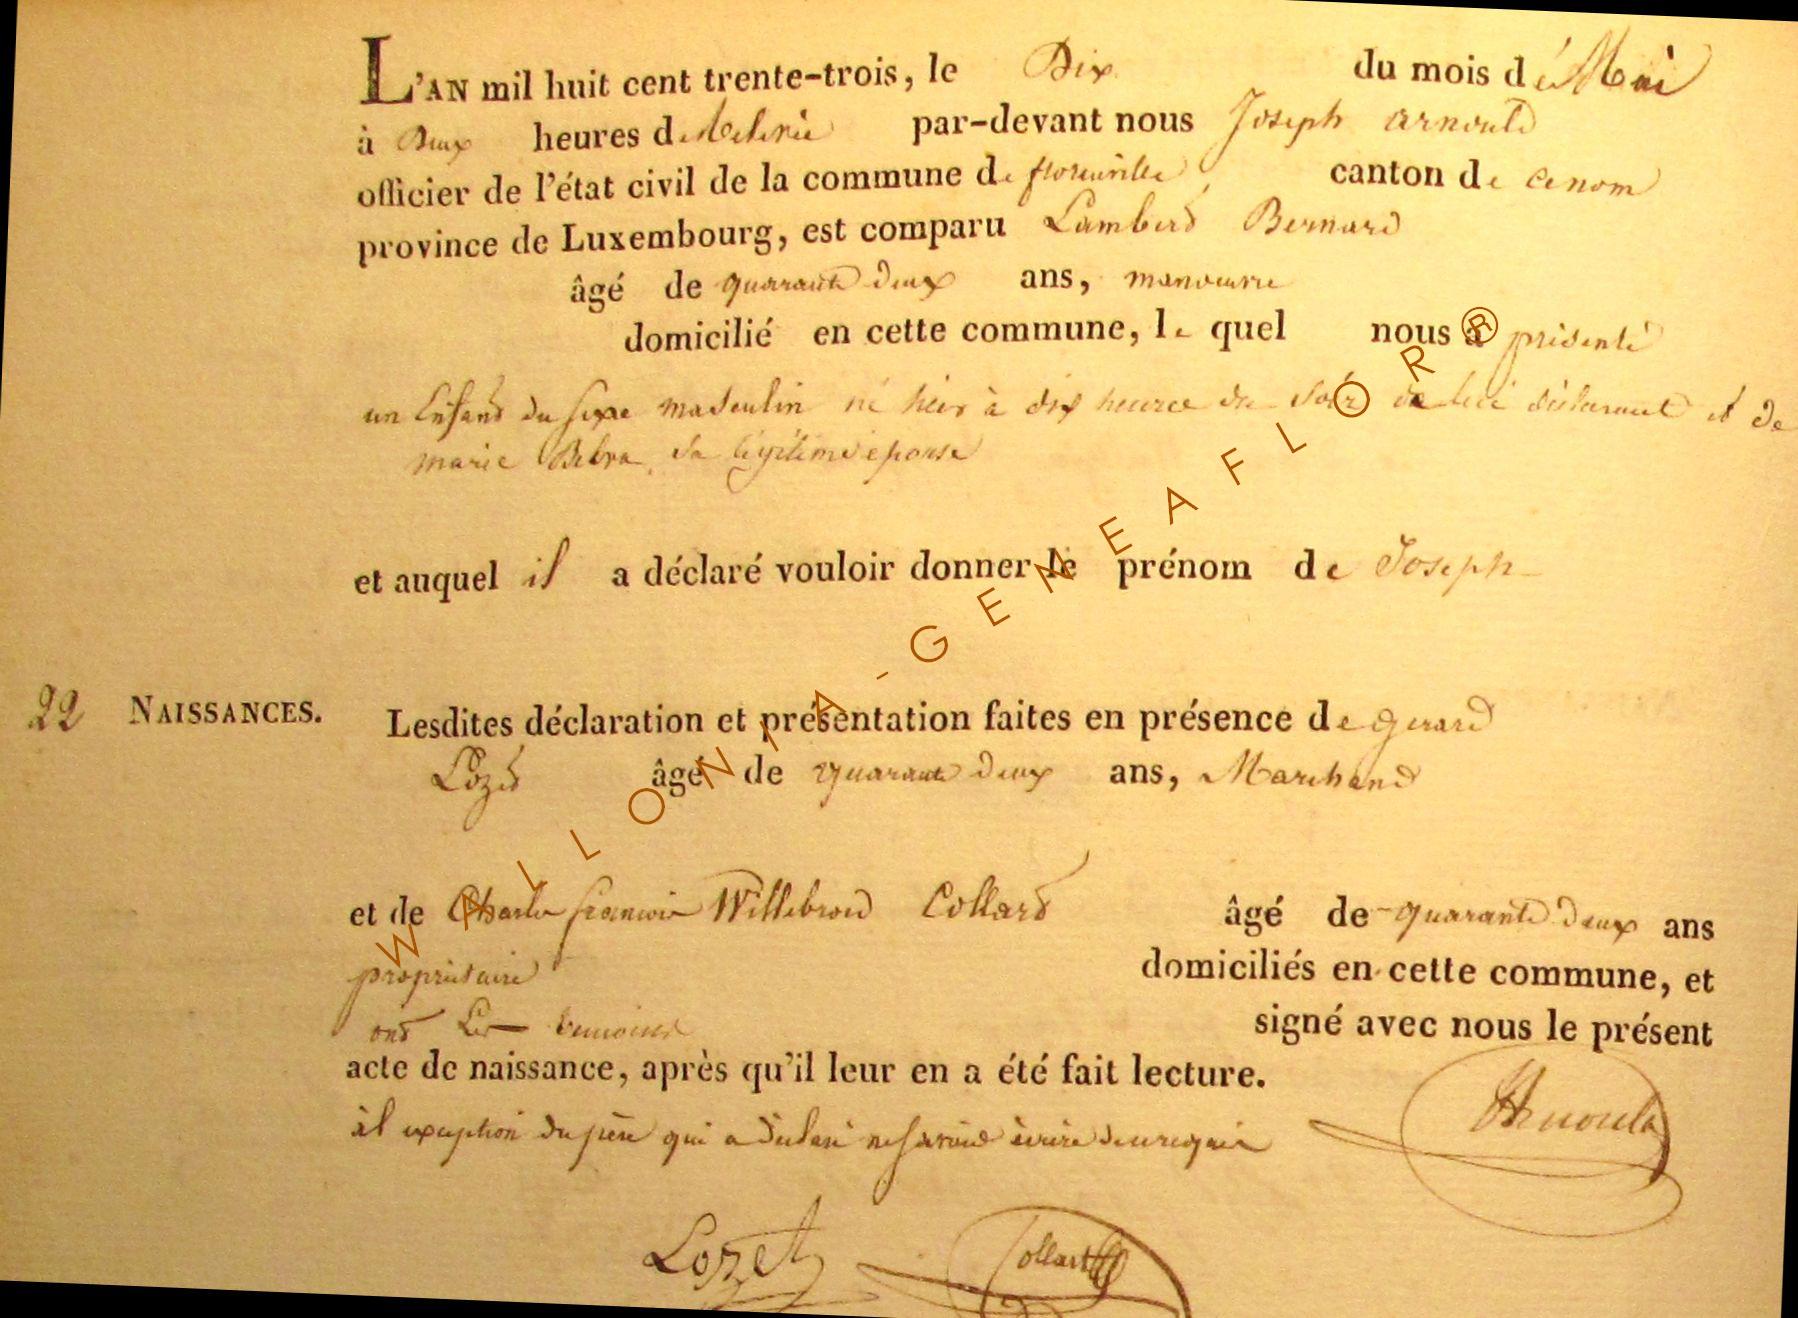 L'AN mil huit cent trente-trois, le Dix du mois de Mai
à Deux heures de Relevée par-devant nous Joseph arnould
officier de l'état civil de la commune de florenville canton de ce nom
province de Luxembourg, est comparu Lambert Bernard
âgé de quarante deux ans, manœuvre
domicilié en cette commune, le quel nous a présenté
un Enfant du sexe masculin né hier à dix heures du soir de lui déclarant et de
marie sa légitime épouse
et auquel il a déclaré vouloir donner le prénom de Joseph
22 NAISSANCES.
Lesdites déclaration et présentation faites en présence de gerard
Lozet âgé de quarante deux ans, Marchand
et de Charles francois Willebrord Collard âgé de quarante deux ans
propriétaire domiciliés en cette commune, et
ont Les temoins signé avec nous le présent
acte de naissance, après qu'il leur en a été fait lecture.
àl exception du père qui a déclaré ne savoir écrire de ce requis
Arnould
Lozet Collart
WALLONIA-GENEAFLOR®